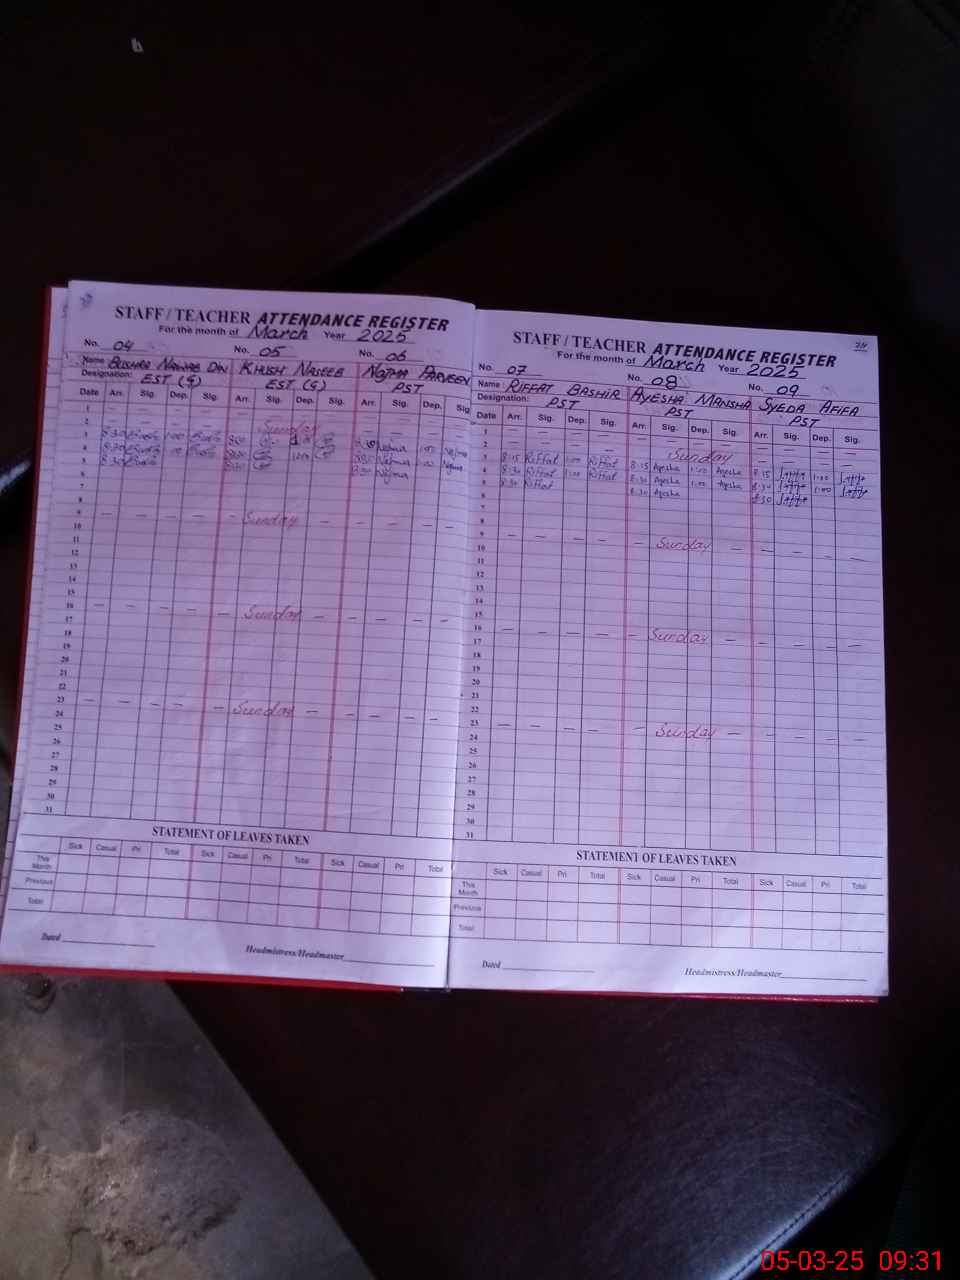 STAFF / TEACHER ATTENDANCE REGISTER
For the month of March Year 2025
No. 04 No. 05 No. 06
Name Nawab Din Khush Naseeb Najma Parveen
Designation: EST (G) EST (G) PST
Date Arr. Sig. Dep. Sig. Arr. Sig. Dep. Sig. Arr. Sig. Dep. Sig
1 — — —
2 — — Sunday — —
3 8:30 1:00 8:00 Najma 1:00 Najma
4 8:30 8:30 8:30 Najma 1:00 Najma
5 8:30 8:30 8:30 Najma
6
7
8
9 — — — — — Sunday — — — — —
10
11
12
13
14
15
16 — — — — — Sunday — — — — —
17
18
19
20
21
22
23 — — — — — Sunday — — — — —
24
25
26
27
28
29
30
31
STATEMENT OF LEAVES TAKEN
Sick Casual Pri Total Sick Casual Pri Total Sick Casual Pri Total
This Month
Previous
Total
Dated
Headmistress/Headmaster
STAFF / TEACHER ATTENDANCE REGISTER
For the month of March Year 2025
No. 07 No. 08 No. 09
Name : Riffat Bashir Ayesha Mansha Syeda Afifa
Designation: PST PST PST
Date Arr. Sig. Dep. Sig. Arr. Sig. Dep. Sig. Arr. Sig. Dep. Sig.
1 — — — —
2 — — — — Sunday — — — —
3 8:15 Riffat 1:00 Riffat 8:15 Ayesha 1:00 Ayesha 8:15 1:00
4 8:30 Riffat 1:00 Riffat 8:30 Ayesha 1:00 Ayesha 8:30 1:00
5 8:30 Riffat 8:30 Ayesha 8:30
6
7
8
9 — — — — — Sunday — — — — —
10
11
12
13
14
15
16 — — — — — Sunday — — — — —
17
18
19
20
21
22
23 — — — — — Sunday — — — — —
24
25
26
27
28
29
30
31
STATEMENT OF LEAVES TAKEN
Sick Casual Pri Total Sick Casual Pri Total Sick Casual Pri Total
This Month
Previous
Total
Dated
Headmistress/Headmaster
05-03-25 09:31